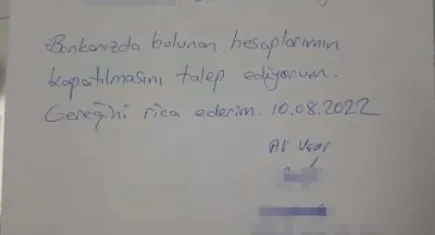 Bankanızda bulunan hesaplarımın
kapatılmasını talep ediyorum.
Gereğini rica ederim. 10.08.2022
Ali Uçar